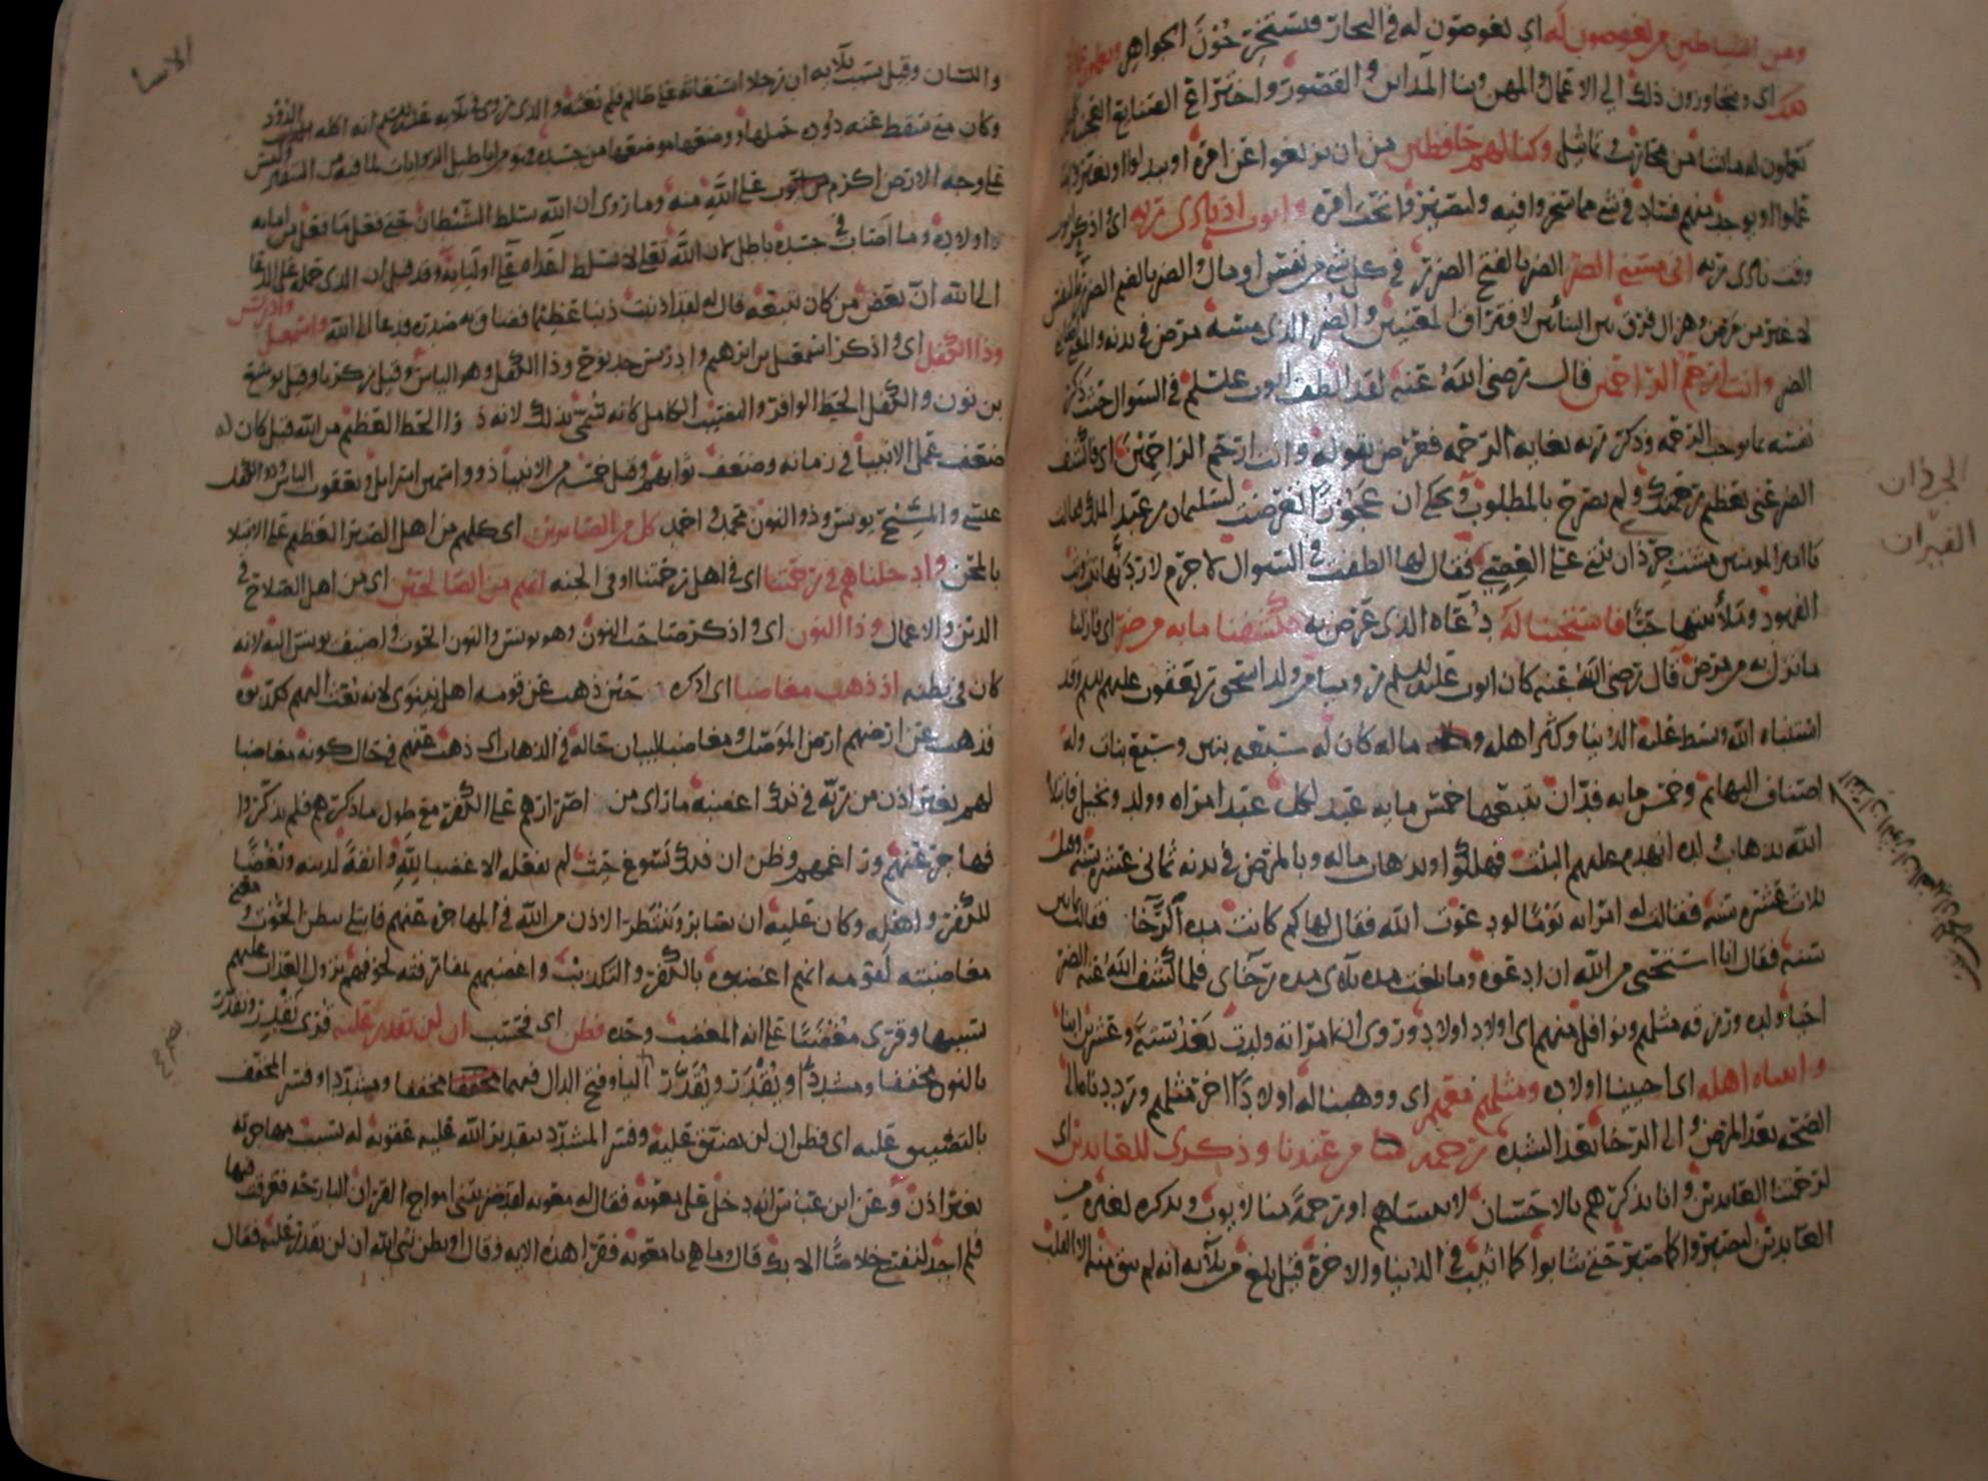 ومن الشياطين من يغوصون له اي يغوصون له في البحار فتستخرجون الجواهر ويعملون عملا
ذلك اي ويتجاوزون ذلك الي الاعمال والمهن وبنا المداين والقصور واختراع الصنايع العجيبة
يعملون له ما يشا من محاريب وتماثيل وكنا لهم حافظين من ان يزيغوا عن امره او يبدلوا او يغيروا
عملوا او يوجد منهم فساد في شي مما سخروا فيه وليصيروا تحت امره وايوب اذ نادى ربه اي اذكر ايوب
وقت نادى ربه انى مسني الضر الضر بالفتح الضرر في كل شي من نفس او مال والضر بالضم الضرر في النفس
لا غير من مرض وهزال فرق بين البنائين لافتراق المعنيين والضر الذي مسه مرض في بدنه
الضر وانت ارحم الراحمين قال رضى الله عنه لقد الطف ايوب عليلم في السوال حيث ذكر
نفسه بما يوجب الرحمه وذكر ربه بغايه الرحمه فعرض بقوله وانت ارحم الراحمين اي فاكشف
الضر عني بعظيم رحمتك ولم يصرح بالمطلوب ويحكى ان عجوزا تعرضت لسليمان بن عبد الملك فقالت
يا امير المومنين مشت جرذان بيتي على العصي فقال لها الطفت في السوال لا جرم لاردنها تثب وثب
الفهود وملأ بيتها حبا فاستجبنا له دعاه الذي عرض به فكشفنا ما به من ضر اي فازلنا
ما نزل به من مرض قال رضي الله عنه كان ايوب عليلم روميا من ولد اسحق بن يعقوب عليهم السلم وقد
استنباه الله وبسط عليه الدنيا وكثر اهله وماله كان له سبعه بنين وسبع بنات وله
اصناف البهايم وخمس مايه فدان يتبعها خمس مايه عبد لكل عبد امراه وولد ونخيل فابتلاه
الله بذهاب ولده انهدم عليهم البيت فهلكوا وبذهاب ماله وبالمرض في بدنه ثماني عشره سنه وقيل
ثلاث عشره سنه فقالت له امراته يوما لو دعوت الله فقال لها كم كانت مده الرخا فقالت ثمانين
سنه فقال انا استحيي من الله ان ادعوه وما بلغت مده بلاي مده رخاي فلما كشف الله عنه الضر
احيا ولده ورزقه مثلهم ونوافل منهم اي اولاد اولاد وروي ان امراته ولدت بعد ستة وعشرين ابنا
واتيناه اهله اي احيينا اولاده ومثلهم معهم اي ووهبنا له اولادا اخر مثلهم ورددنا ماله
الصحه بعد المرض والى الرخا بعد الشده رحمة من عندنا وذكرى للعابدين اي
لرحمتنا العابدين وانا نذكرهم بالاحسان لا ننساهم او رحمة منا لايوب وتذكره لغيره من
العابدين ليصبروا كما صبر حتى يثابوا كما اثيب في الدنيا والاخرة قيل بلغ من بلآيه انه لم يبق منه الا القلب
الجرذان
الفيران
الانبيا
واللسان وقيل سبب بلآيه ان رجلا استغاثه على ظالم فلم يغثه والذي روي في بلآيه عليلم انه اكله الدود
وكان متى سقط عنه دوده حملها ووضعها موضعها من جسده فهو من اباطيل الروايات لما فيه من التنفير وليس
على وجه الارض اكرم من ايوب على الله منه وما روى ان الله سلط الشيطان حتى فعل ما فعل من امانه
اولاده وما اصاب في جسده باطل لان الله تعلى لا يسلط اعداه على اوليايه وقد قيل ان الذي حمله على الدعا
الى الله ان بعض من كان يتبعه قال له لقد اذنبت ذنبا عظيما فضاق به صدره ودعا الى الله واسمعيل وادريس
وذا الكفل اي واذكر اسمعيل بن ابرهيم وادريس جد نوح وذا الكفل وهو الياس وقيل زكريا وقيل يوشع
بن نون والكفل الحظ الوافر والنصيب الكامل كانه سمي بذلك لانه ذو الحظ العظيم من الله قيل كان له
ضعف عمل الانبيا في زمانه وضعف ثوابهم وقيل خمسه من الانبيا ذوو اسمين اسرايل ويعقوب الياس وذو الكفل
عيسى والمسيح يونس وذو النون محمد واحمد كل من الصابرين اي كلهم من اهل الصبر العظيم على الابتلا
بالمحن وادخلناهم في رحمتنا اي في اهل رحمتنا او في الجنه انهم من الصالحين اي من اهل الصلاح في
الدين والاعمال وذا النون اي واذكر صاحب النون وهو يونس والنون الحوت واضيف يونس اليه لانه
كان في بطنه اذ ذهب مغاضبا اي اذكره حين ذهب عن قومه اهل نينوى لانه بعث اليهم فكذبوه
فذهب عن ارضهم ارض الموصل ومغاضبا لبيان حاله في الذهاب اي ذهب عنهم في حال كونه مغاضبا
لهم بغير اذن من ربه في ذلك اغضبه ما راى من اصرارهم على الكفر مع طول ما ذكرهم فلم يذكروا
فهاجر عنهم وراغمهم وظن ان ذلك يسوغ حيث لم يفعله الا غضبا لله وانفة لدينه وبغضا
للكفر واهله وكان عليه ان يصابر وينتظر الاذن من الله في المهاجره عنهم فابتلي ببطن الحوت ومعنى
مغاضبته لقومه انهم اغضبوه بالكفر والتكذيب واغضبهم بمفارقته لخوفهم نزول العذاب عليهم
بسببها وقرى مغضبا على انه المغضب وحده فظن اي فحسب ان لن نقدر عليه قرى نقدر ونقدر
بالنون مخففا ومشددا ويقدر ويقدر الياء وفتح الدال فيهما مخففا ومشددا وفسر المخفف
بالتضييق عليه اي فظن ان لن نضيق عليه وفسر المشدد بتقدير الله عليه عقوبه له بسبب مهاجرته
بغير اذن وعن ابن عباس انه دخل على معويه فقال له معويه لقد ضربتني امواج القران البارحه فغرقت فيها
فلم اجد لنفسي خلاصا الا بك قال وما هي يا معويه فقرا هذه الايه وقال او يظن نبي الله ان لن نقدر عليه فقال